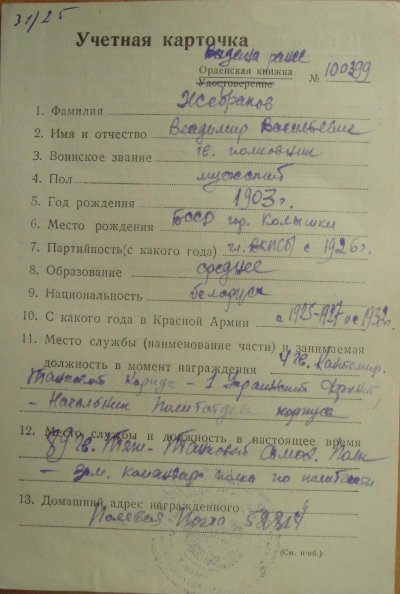 31/25
Учетная карточка
выдана ранее
Орденская книжка
Удостоверение № 100399
1. Фамилия Жебраков
2. Имя и отчество Владимир Васильевич
3. Воинское звание гв. полковник
4. Пол мужской
5. Год рождения 1903 г.
6. Место рождения БССР гор. Колышки
7. Партийность(с какого года) чл. ВКП(б) с 1926 г.
8. Образование среднее
9. Национальность белорус
10. С какого года в Красной Армии с 1925-1927 и с 1932 г.
11. Место службы (наименование части) и занимаемая
должность в момент награждения 4 гв. Кантемир.
Танковой Корпус - 1 Украинский Фронт,
- Начальник Политотдела корпуса
12. Место службы и должность в настоящее время
89 гв. Тяж- Танковой Самох. Полк
- Зам. командира полка по политчасти
13. Домашний адрес награжденного
Полевая Почта
(См. н/об.)